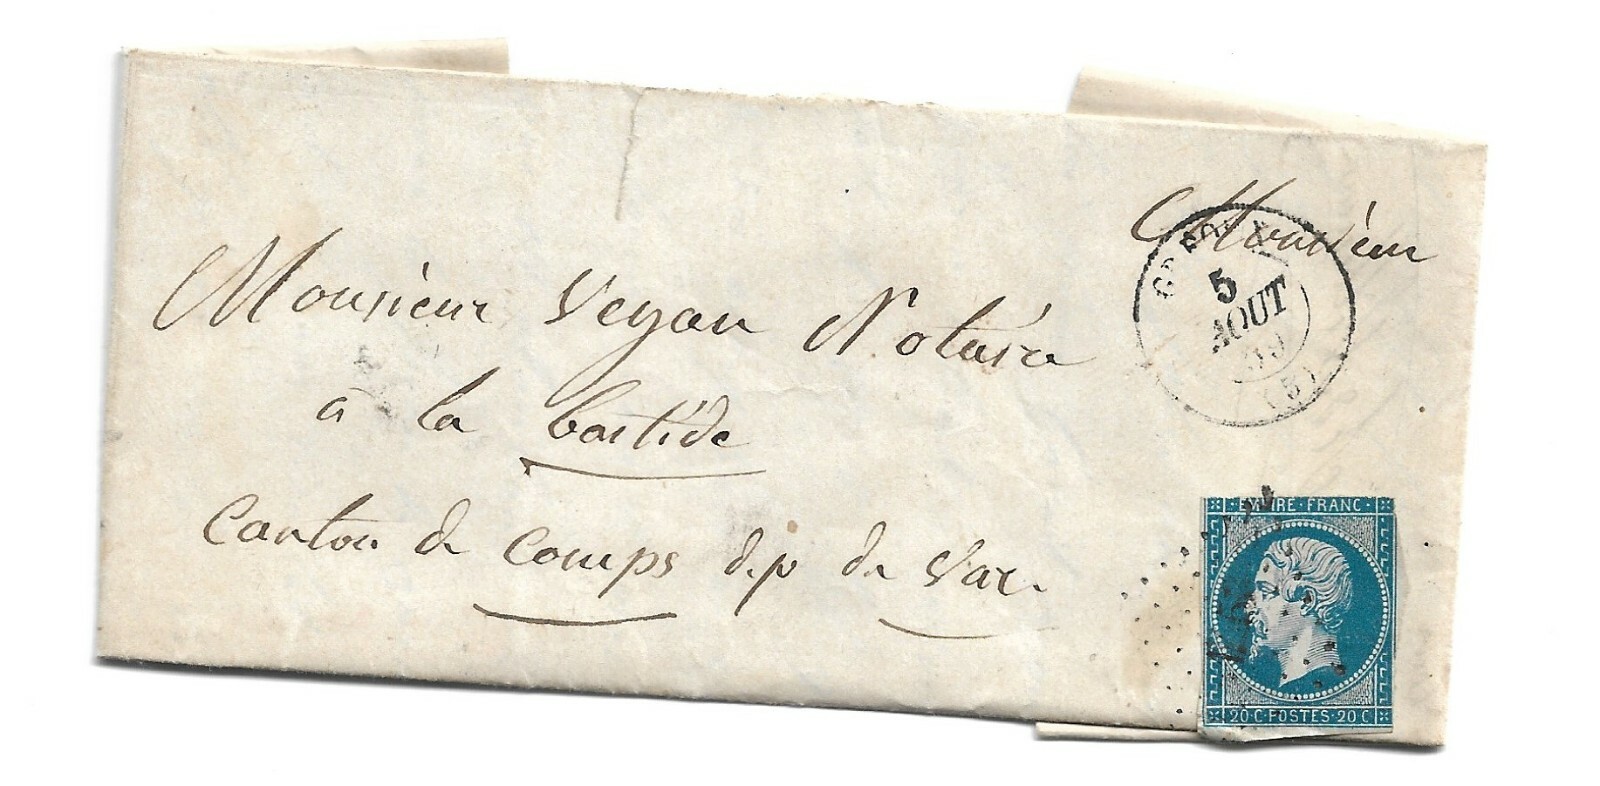 Monsieur
Monsieur Veyan Notaire
à la bastide
Canton de Comps dép du Var.
5
AOUT
59
(5)
EMPIRE·FRANC·
20·C·POSTES·20·C